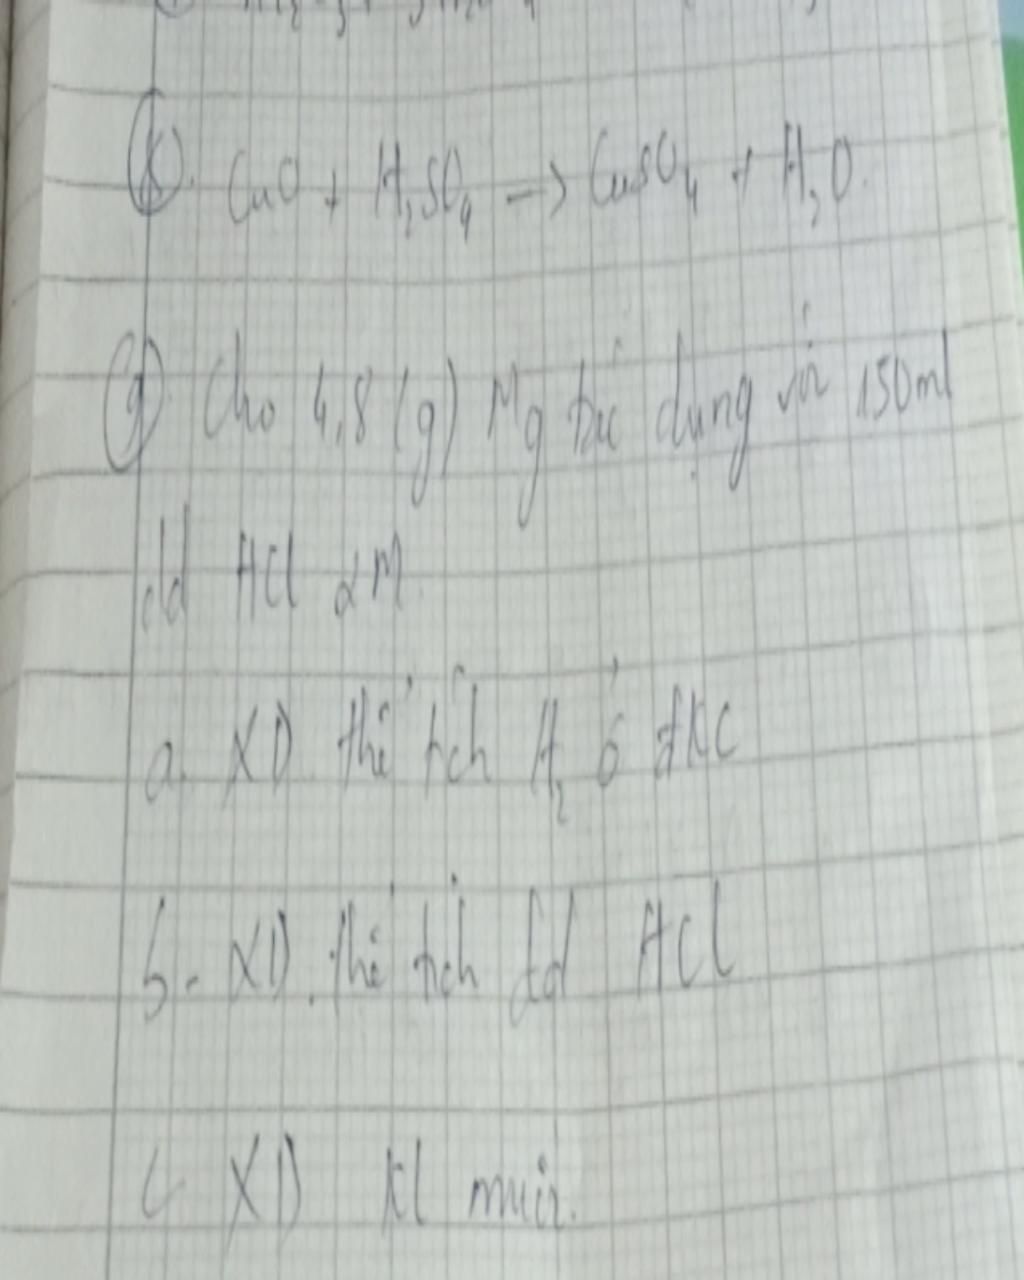 (k). CuO + H₂SO₄ → CuSO₄ + H₂O.
(g) Cho 4,8 (g) Mg tác dụng với 150ml
dd HCl 2M.
a. XD thể tích H₂ ở đKC
b. XD thể tích dd HCl
c XD Kl muối.